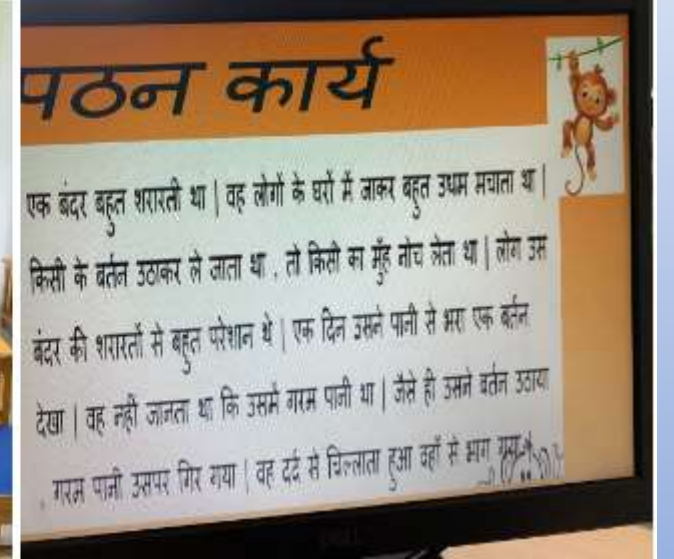 पठन कार्य
एक बंदर बहुत शरारती था | वह लोगों के घरों में जाकर बहुत उधम मचाता था |
किसी के बर्तन उठाकर ले जाता था , तो किसी का मुँह नोच लेता था | लोग उस
बंदर की शरारतों से बहुत परेशान थे | एक दिन उसने पानी से भरा एक बर्तन
देखा | वह नही जानता था कि उसमे गरम पानी था | जैसे ही उसने बर्तन उठाया
, गरम पानी उसपर गिर गया | वह दर्द से चिल्लाता हुआ वहाँ से भाग गया